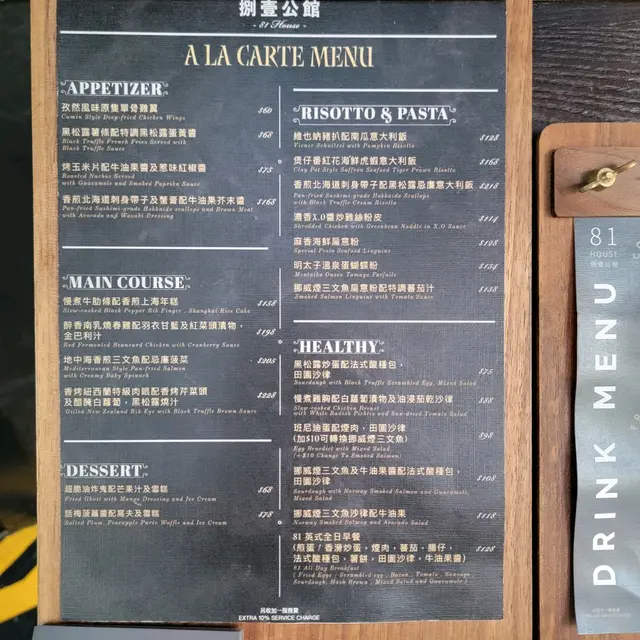 捌壹公館
- 81 House -
A LA CARTE MENU
APPETIZER
孜然風味原隻單骨雞翼 $60
Cumin Style Deep-fried Chicken Wings
黑松露薯條配特調黑松露蛋黃醬 $68
Black Truffle French Fries Served with
Black Truffle Sauce
烤玉米片配牛油果醬及惹味紅椒醬 $75
Roasted Nachos Served
with Guacamole and Smoked Paprika Sauce
香煎北海道刺身帶子及蟹膏配牛油果芥末醬 $168
Pan-fried Sashimi-grade Hokkaido scallops and Brown Meat
with Avocado and Wasabi Dressing
MAIN COURSE
慢煮牛肋條配香煎上海年糕 $158
Slow-cooked Black Pepper Rib Finger , Shanghai Rice Cake
醉香南乳燒春雞配羽衣甘藍及紅菜頭漬物，
金巴利汁 $198
Red Fermented Beancurd Chicken with Cranberry Sauce
地中海香煎三文魚配忌廉菠菜 $205
Mediterranean Style Pan-fried Salmon
with Creamy Baby Spinach
香烤紐西蘭特級肉眼配香烤芹菜頭
及醋醃白蘿蔔，黑松露燒汁 $228
Grilled New Zealand Rib Eye with Black Truffle Brown Sauce
DESSERT
超脆油炸鬼配芒果汁及雪糕 $68
Fried Ghost with Mango Dressing and Ice Cream
話梅菠蘿醬配窩夫及雪糕 $78
Salted Plum, Pineapple Puree Waffle and Ice Cream
RISOTTO & PASTA
維也納豬扒配南瓜意大利飯 $128
Viener Schnitzel with Pumpkin Risotto
煲仔番紅花海鮮虎蝦意大利飯 $168
Clay Pot Style Saffron Seafood Tiger Prawn Risotto
香煎北海道刺身帶子配黑松露忌廉意大利飯 $218
Pan-fried Sashimi-grade Hokkaido Scallops
with Black Truffle Cream Risotto
濃香X.O醬炒雞絲粉皮 $114
Shredded Chicken with Greenbean Noddle in X.O Sauce
麻香海鮮扁意粉 $148
Special Pesto Seafood Linguine
明太子溫泉蛋蝴蝶粉 $134
Mentaiko Onsen Tamago Farfalle
挪威煙三文魚扁意粉配特調蕃茄汁 $138
Smoked Salmon Linguine with Tomato Sauce
HEALTHY
黑松露炒蛋配法式酸種包，
田園沙律 $75
Sourdough with Black Truffle Scrambled Egg, Mixed Salad
慢煮雞胸配白蘿蔔漬物及油浸茄乾沙律 $88
Slow-cooked Chicken Breast
with White Radish Pickles and Sun-dried Tomato Salad
班尼迪蛋配煙肉，田園沙律
(加$10可轉換挪威煙三文魚) $98
Egg Benedict with Mixed Salad
(+$10 Change To Smoked Salmon)
挪威煙三文魚及牛油果醬配法式酸種包，
田園沙律 $108
Sourdough with Norway Smoked Salmon and Guacamole,
Mixed Salad
挪威煙三文魚沙律配牛油果 $118
Norway Smoked Salmon and Avocado Salad
81 英式全日早餐
(煎蛋 / 香滑炒蛋，煙肉，蕃茄，腸仔， $128
法式酸種包，薯餅，田園沙律，牛油果醬)
81 All Day Breakfast
( Fried Eggs / Scrambled egg , Bacon , Tomato , Sausage ,
Sourdough, Hash Brown , Mixed Salad and Guacamole )
另收加一服務費
EXTRA 10% SERVICE CHARGE
81
HOUSE
捌壹公館
DRINK MENU